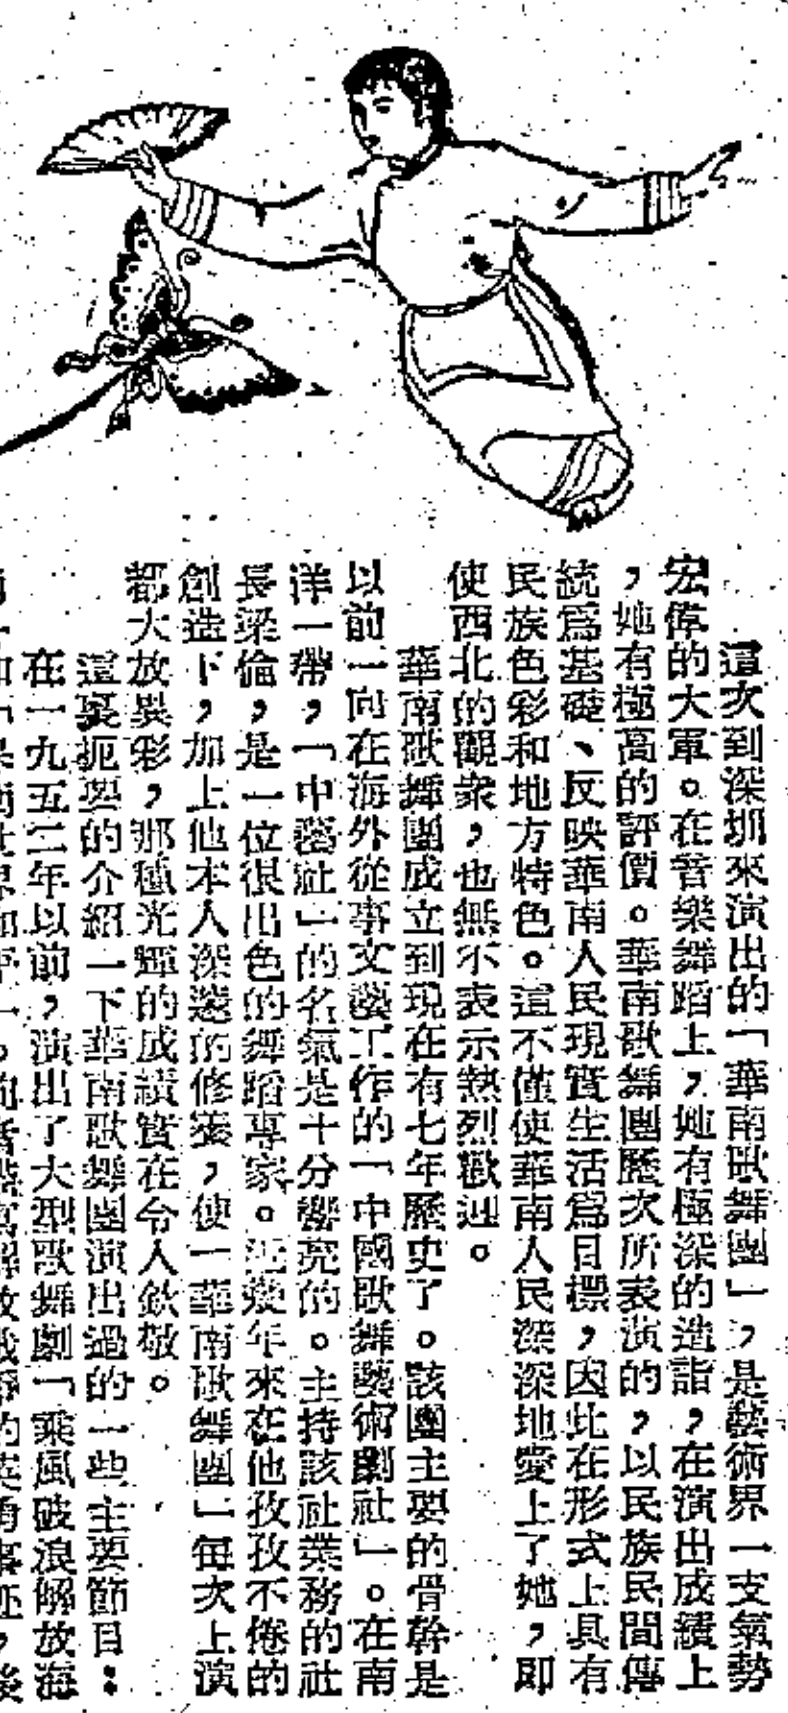 這次到深圳來演出的「華南歌舞團」，是藝術界一支氣勢
宏偉的大軍。在音樂舞蹈上，她有極深的造詣，在演出成績上
，她有極高的評價。華南歌舞團歷次所表演的，以民族民間傳
統爲基礎、反映華南人民現實生活爲目標，因此在形式上具有
民族色彩和地方特色。這不僅使華南人民深深地愛上了她，即
使西北的觀衆，也無不表示熱烈歡迎。
華南歌舞團成立到現在有七年歷史了。該團主要的骨幹是
以前一向在海外從事文藝工作的「中國歌舞藝術劇社」。在南
洋一帶，「中藝社」的名氣是十分響亮的。主持該社業務的社
長梁倫，是一位很出色的舞蹈專家。近幾年來在他孜孜不倦的
創造下，加上他本人深邃的修養，使「華南歌舞團」每次上演
都大放異彩，那種光輝的成績實在令人欽敬。
這裏扼要的介紹一下華南歌舞團演出過的一些主要節目：
在一九五二年以前，演出了大型歌舞劇「乘風破浪解放海